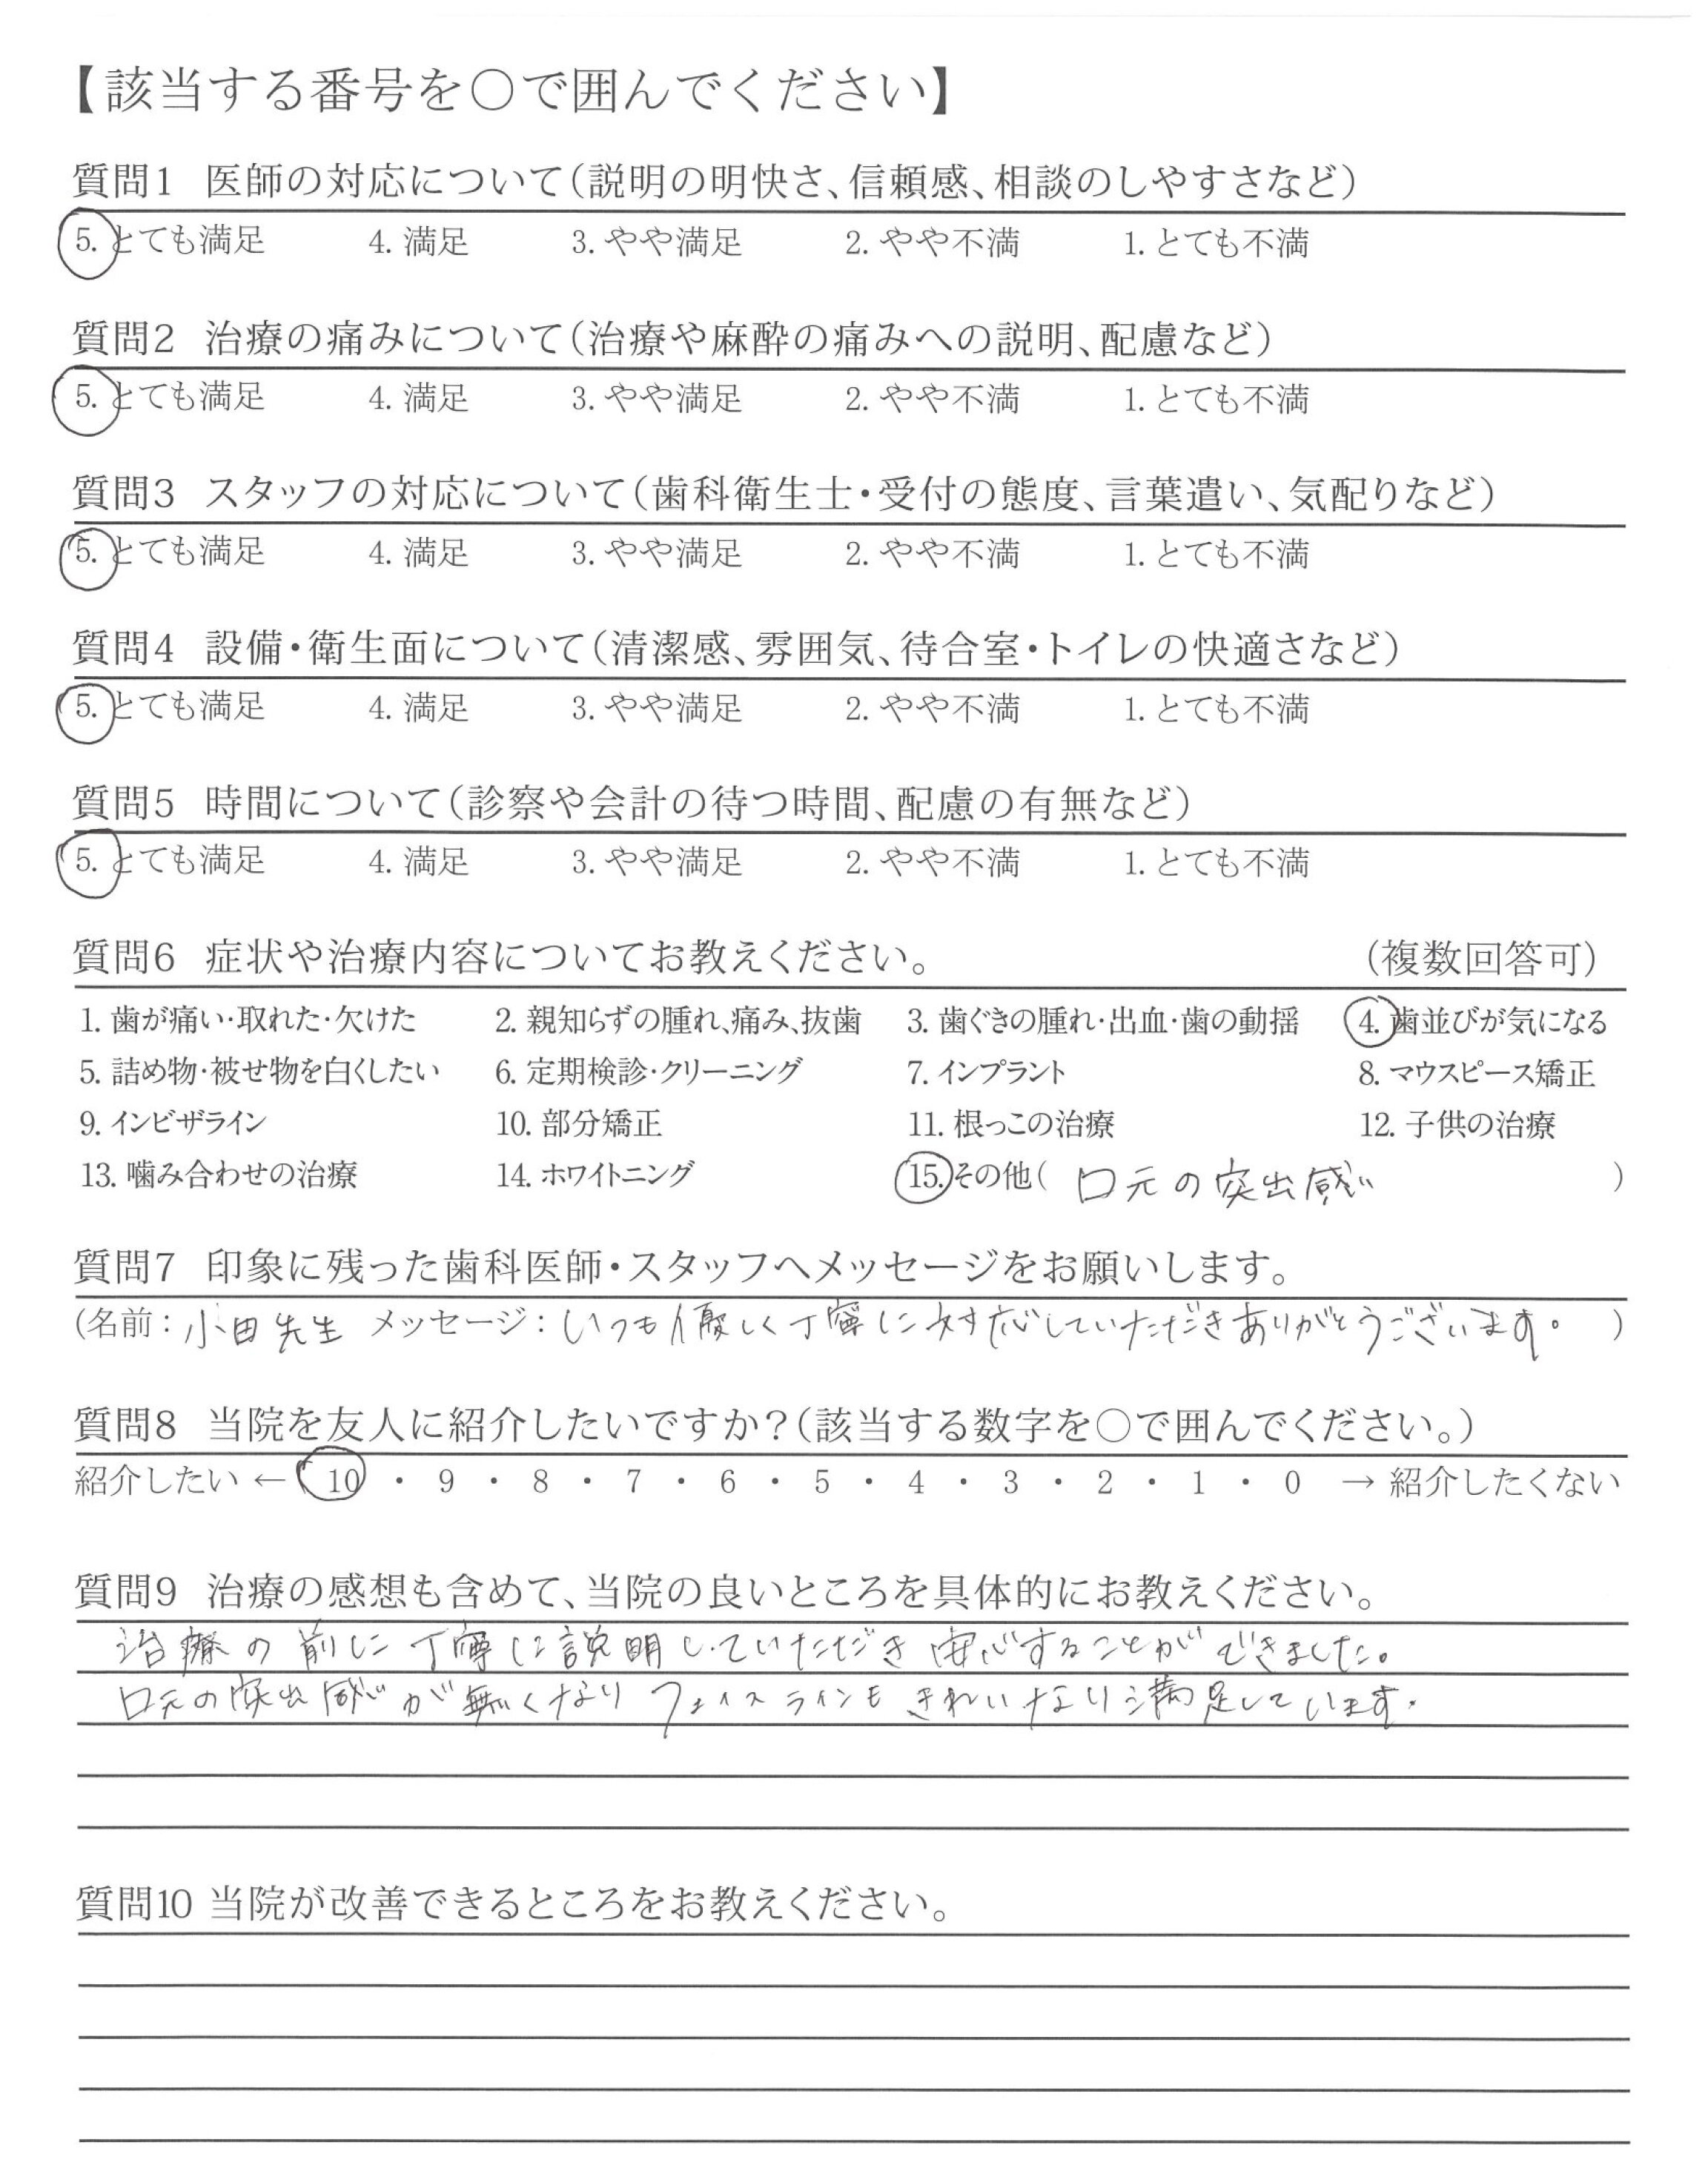 【該当する番号を○で囲んでください】
質問1 医師の対応について（説明の明快さ、信頼感、相談のしやすさなど）
5. とても満足 4. 満足 3. やや満足 2. やや不満 1. とても不満
質問2 治療の痛みについて（治療や麻酔の痛みへの説明、配慮など）
5. とても満足 4. 満足 3. やや満足 2. やや不満 1. とても不満
質問3 スタッフの対応について（歯科衛生士・受付の態度、言葉遣い、気配りなど）
5. とても満足 4. 満足 3. やや満足 2. やや不満 1. とても不満
質問4 設備・衛生面について（清潔感、雰囲気、待合室・トイレの快適さなど）
5. とても満足 4. 満足 3. やや満足 2. やや不満 1. とても不満
質問5 時間について（診察や会計の待つ時間、配慮の有無など）
5. とても満足 4. 満足 3. やや満足 2. やや不満 1. とても不満
質問6 症状や治療内容についてお教えください。 （複数回答可）
1. 歯が痛い・取れた・欠けた 2. 親知らずの腫れ、痛み、抜歯 3. 歯ぐきの腫れ・出血・歯の動揺 4. 歯並びが気になる
5. 詰め物・被せ物を白くしたい 6. 定期検診・クリーニング 7. インプラント 8. マウスピース矯正
9. インビザライン 10. 部分矯正 11. 根っこの治療 12. 子供の治療
13. 噛み合わせの治療 14. ホワイトニング 15. その他（ 口元の突出感 ）
質問7 印象に残った歯科医師・スタッフへメッセージをお願いします。
（名前：小田先生 メッセージ：いつも優しく丁寧に対応していただきありがとうございます。 ）
質問8 当院を友人に紹介したいですか？（該当する数字を○で囲んでください。）
紹介したい ← 10 ・ 9 ・ 8 ・ 7 ・ 6 ・ 5 ・ 4 ・ 3 ・ 2 ・ 1 ・ 0 → 紹介したくない
質問9 治療の感想も含めて、当院の良いところを具体的にお教えください。
治療の前に丁寧に説明していただき安心することができました。
口元の突出感が無くなりフェイスラインもきれいなり満足しています。
質問10 当院が改善できるところをお教えください。